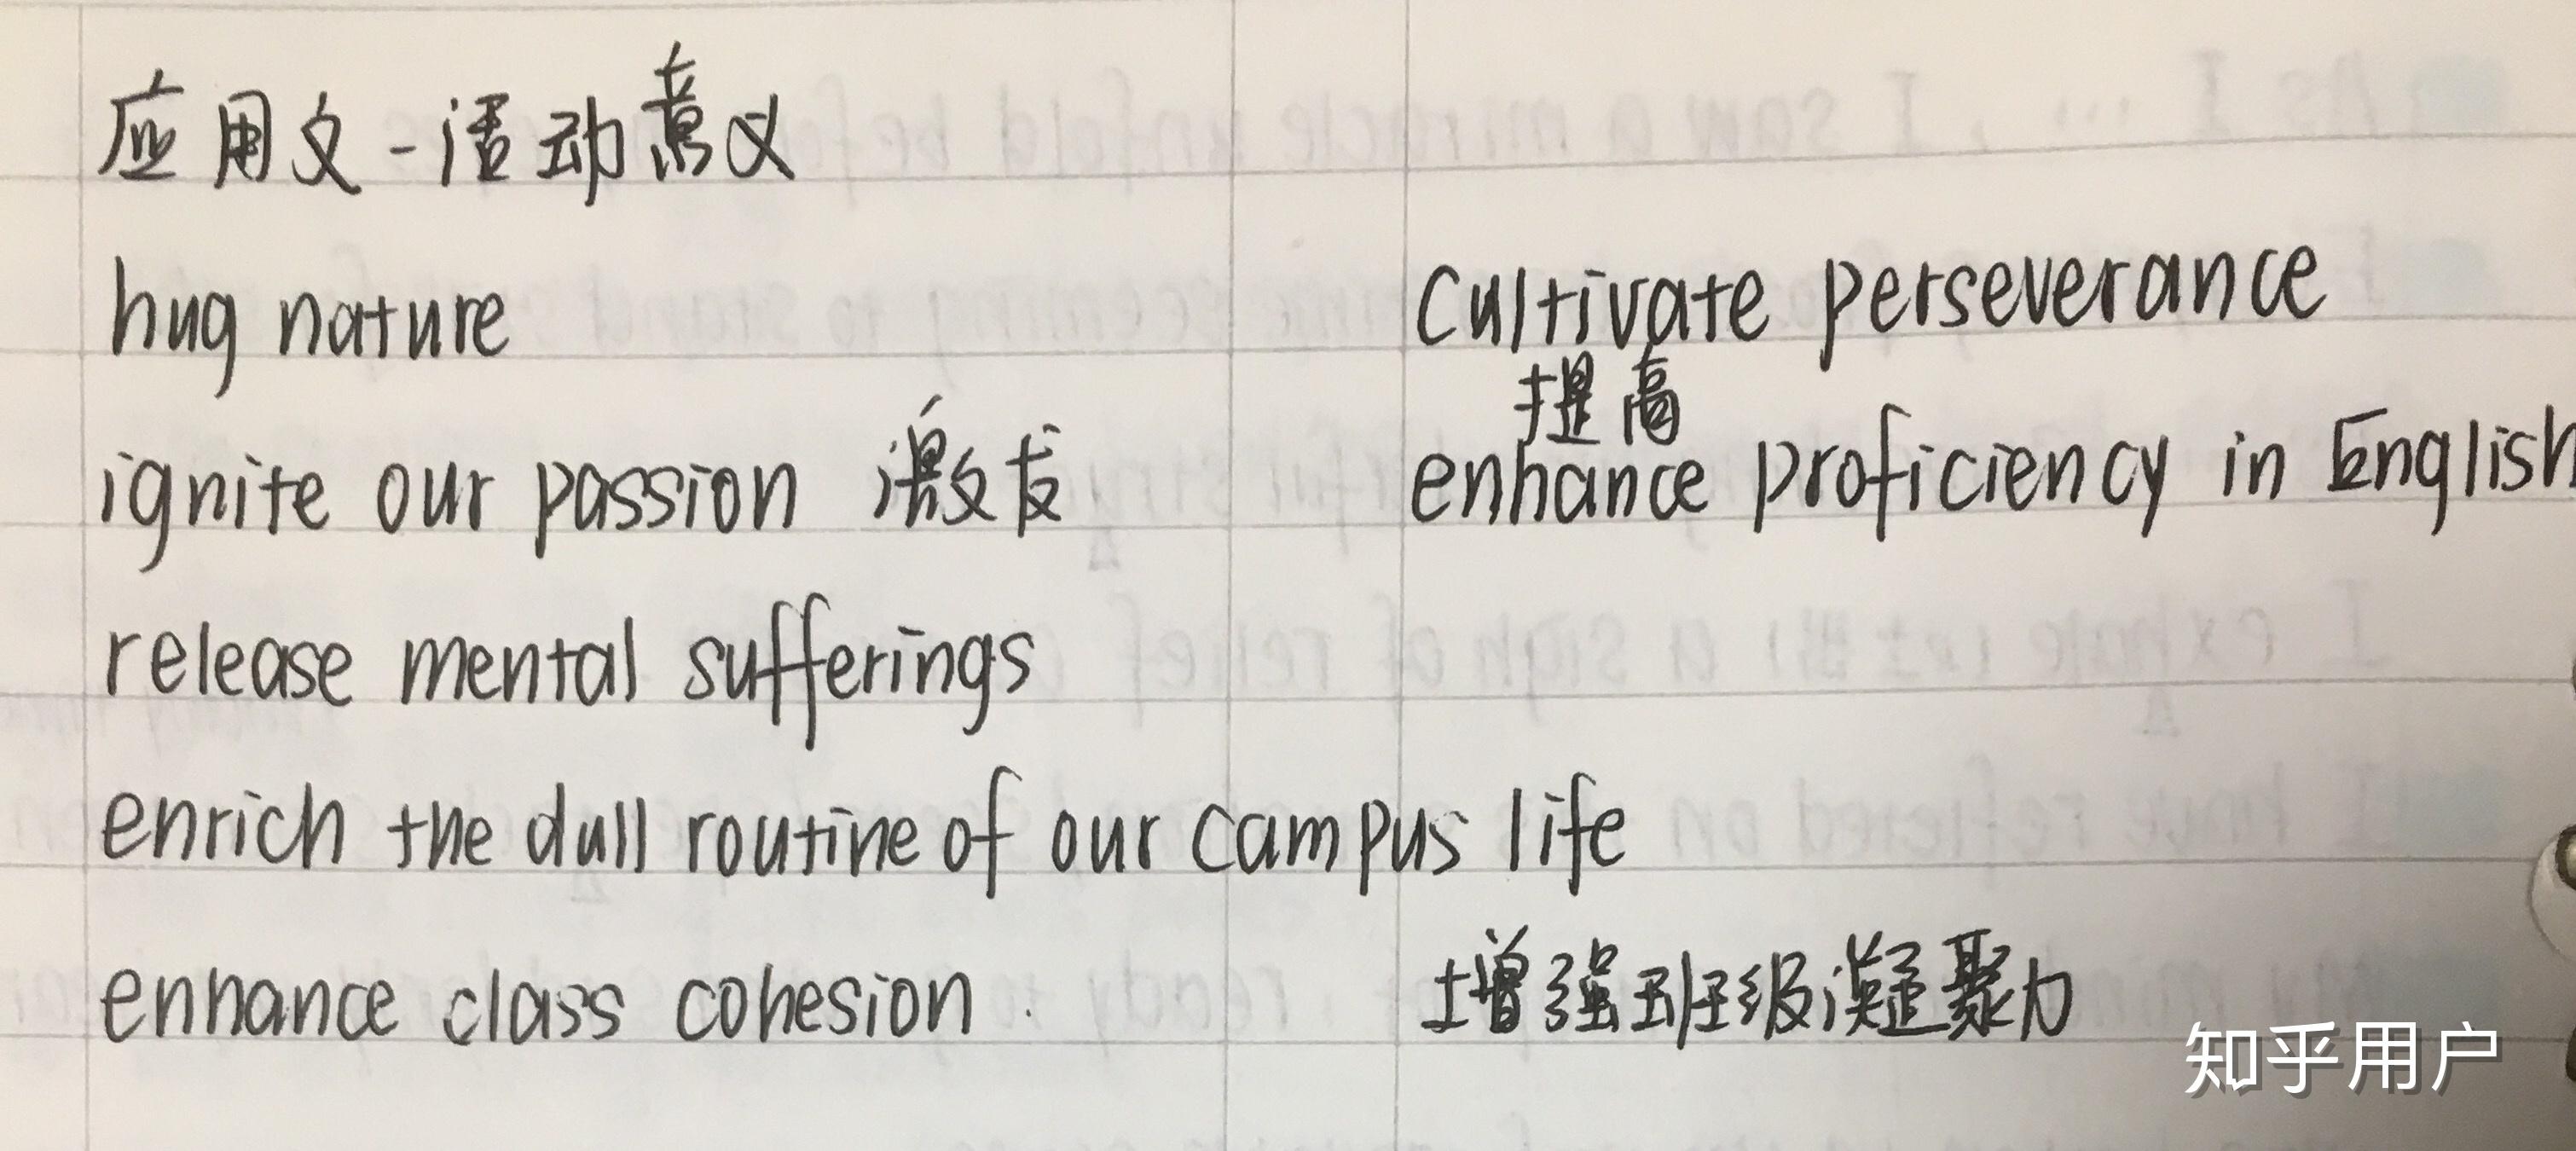 应用文-活动意义
hug nature
cultivate perseverance
ignite our passion 激发
提高
enhance proficiency in English
release mental sufferings
enrich the dull routine of our campus life
enhance class cohesion
增强班级凝聚力
知乎用户